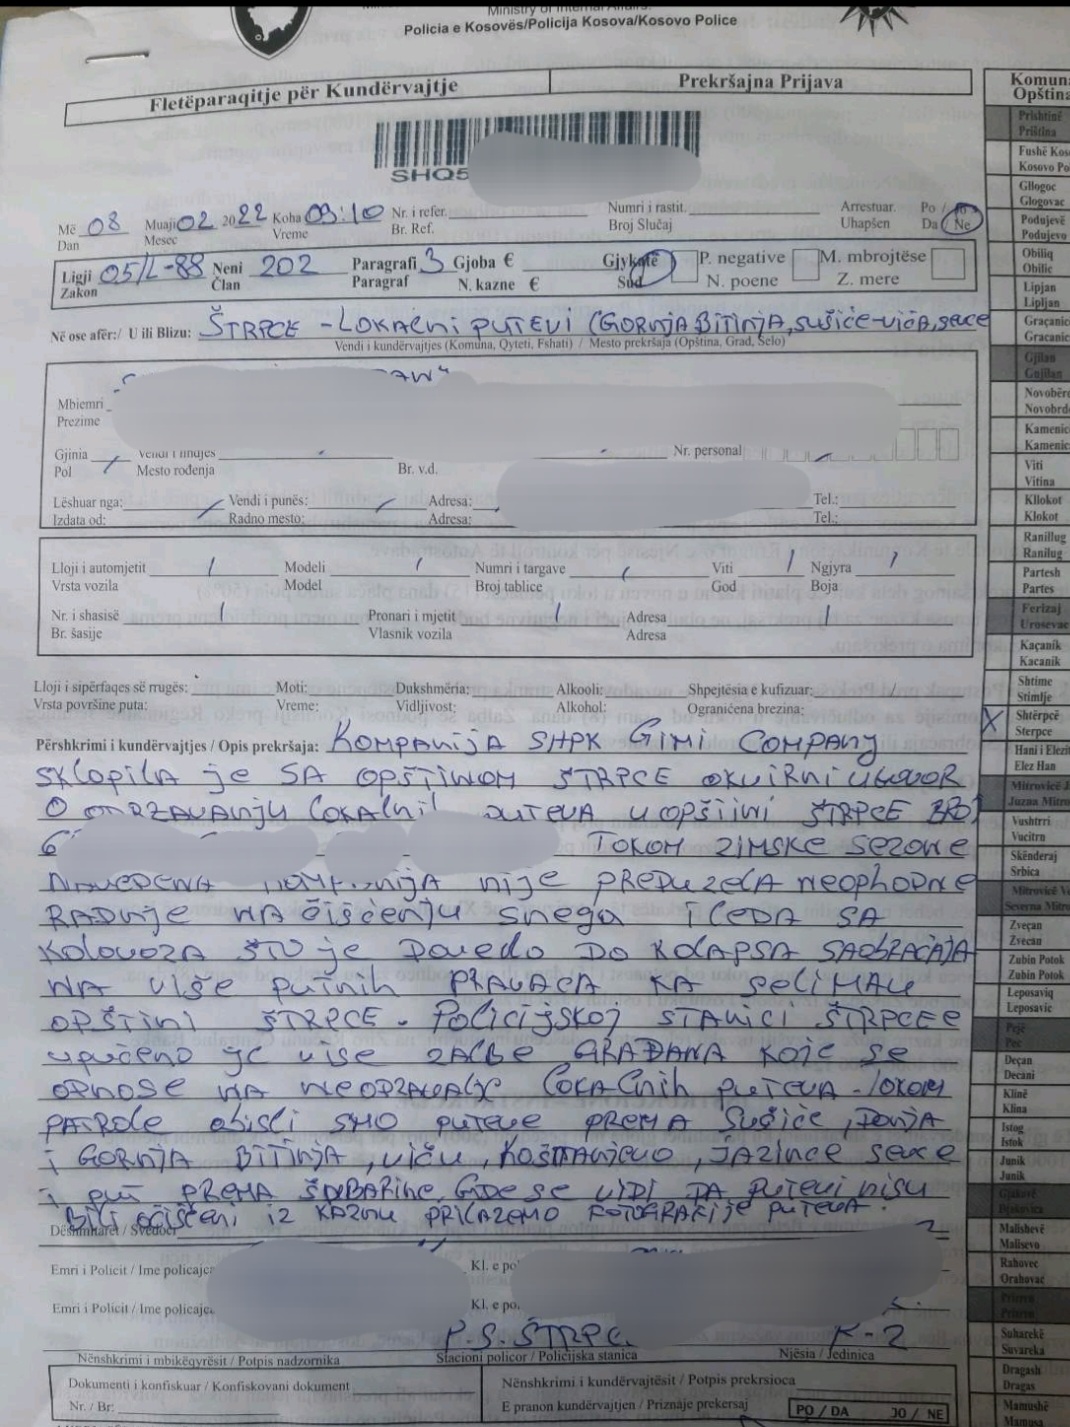 Ministry of Internal Affairs
Policia e Kosovës/Policija Kosova/Kosovo Police
Fletëparaqitje për Kundërvajtje
Prekršajna Prijava
SHQ5
Më 08 Muaji 02 2022 Koha 09:10 Nr. i refer. Numri i rastit. Arrestuar. Po / Jo
Dan Mesec Vreme Br. Ref. Broj Slučaj Uhapšen Da / Ne
Ligji 05/L-88 Neni 202 Paragrafi 3 Gjoba € Gjykatë P. negative M. mbrojtëse
Zakon Član Paragraf N. kazne € Sud N. poene Z. mere
Në ose afër:/ U ili Blizu: ŠTRPCE - LOKALNI PUTEVI (GORNJA BITINJA, SUŠIĆE-VIČA, SEVCE
Vendi i kundërvajtjes (Komuna, Qyteti, Fshati) / Mesto prekršaja (Opština, Grad, Selo)
Mbiemri
Prezime
Gjinia Vendi i lindjes Nr. personal
Pol Mesto rođenja Br. v.d.
Lëshuar nga: Vendi i punës: Adresa: Tel.:
Izdata od: Radno mesto: Adresa: Tel.:
Lloji i automjetit Modeli Numri i targave Viti Ngjyra
Vrsta vozila Model Broj tablice God Boja
Nr. i shasisë Pronari i mjetit Adresa
Br. šasije Vlasnik vozila Adresa
Lloji i sipërfaqes së rrugës: Moti: Dukshmëria: Alkooli: Shpejtësia e kufizuar:
Vrsta površine puta: Vreme: Vidljivost: Alkohol: Ograničena brezina:
Përshkrimi i kundërvajtjes / Opis prekršaja: KOMPANIJA SHPK GIMI COMPANY
SKLOPILA JE SA OPŠTINOM ŠTRPCE OKVIRNI UGOVOR
O ODRZAVANJU LOKALNIH PUTEVA U OPŠTINI ŠTRPCE BROJ
6 TOKOM ZIMSKE SEZONE
NAVEDENA KOMPANIJA NIJE PREDUZELA NEOPHODNE
RADNJE NA ČIŠĆENJU SNEGA I LEDA SA
KOLOVOZA ŠTO JE DOVEDO DO KOLAPSA SAOBRAĆAJA
NA VIŠE PUTNIH PRAVACA KA SELIMA U
OPŠTINI ŠTRPCE. POLICIJSKOJ STANICI ŠTRPCE
UPUĆENO JE VISE ZALBE GRAĐANA KOJE SE
ODNOSE NA NEODRZAVANJE LOKALNIH PUTEVA. TOKOM
PATROLE OBISLI SMO PUTEVE PREMA SUŠIĆE, DONJA
I GORNJA BITINJA, VIČU, KOŠTANJEVO, JAZINCE SEVCE
I PUT PREMA GDE SE VIDI DA PUTEVI NISU
BILI OČIŠĆENI IZ KAZNU PRILAZEMO FOTOGRAFIJE PUTEVA.
Dëshmitarët / Svedoci
Emri i Policit / Ime policajca Kl. e po
Emri i Policit / Ime policajca Kl. e po.
P.S. ŠTRPC K-2
Nënshkrimi i mbikëqyrësit / Potpis nadzornika Stacioni policor / Policijska stanica Njësia / Jedinica
Dokumenti i konfiskuar / Konfiskovani dokument
Nr. / Br:
Nënshkrimi i kundërvajtësit / Potpis prekrsioca
E pranon kundërvajtjen / Priznaje prekersaj PO / DA JO / NE
Komuna
Opština
Prishtinë
Priština
Fushë Kos
Kosovo Po
Gllogoc
Glogovac
Podujevë
Podujevo
Obiliq
Obilic
Lipjan
Lipljan
Graçanic
Gracanic
Gjilan
Gnjilan
Novobërd
Novobrdo
Kamenic
Kamenic
Viti
Vitina
Kllokot
Klokot
Ranillug
Ranilug
Partesh
Partes
Ferizaj
Urosevac
Kaçanik
Kacanik
Shtime
Stimlje
X Shtërpcë
Sterpce
Hani i Elezit
Elez Han
Mitrovicë J
Juzna Mitro
Vushtrri
Vucitrn
Skënderaj
Srbica
Mitrovicë Ve
Severna Mitro
Zveçan
Zvecan
Zubin Potok
Zubin Potok
Leposaviq
Leposavic
Pejë
Pec
Deçan
Decani
Klinë
Klina
Istog
Istok
Junik
Junik
Gjakovë
Djakovica
Malishevë
Malisevo
Rahovec
Orahovac
Prizren
Prizren
Suharekë
Suvareka
Dragash
Dragas
Mamushë
Mamusa